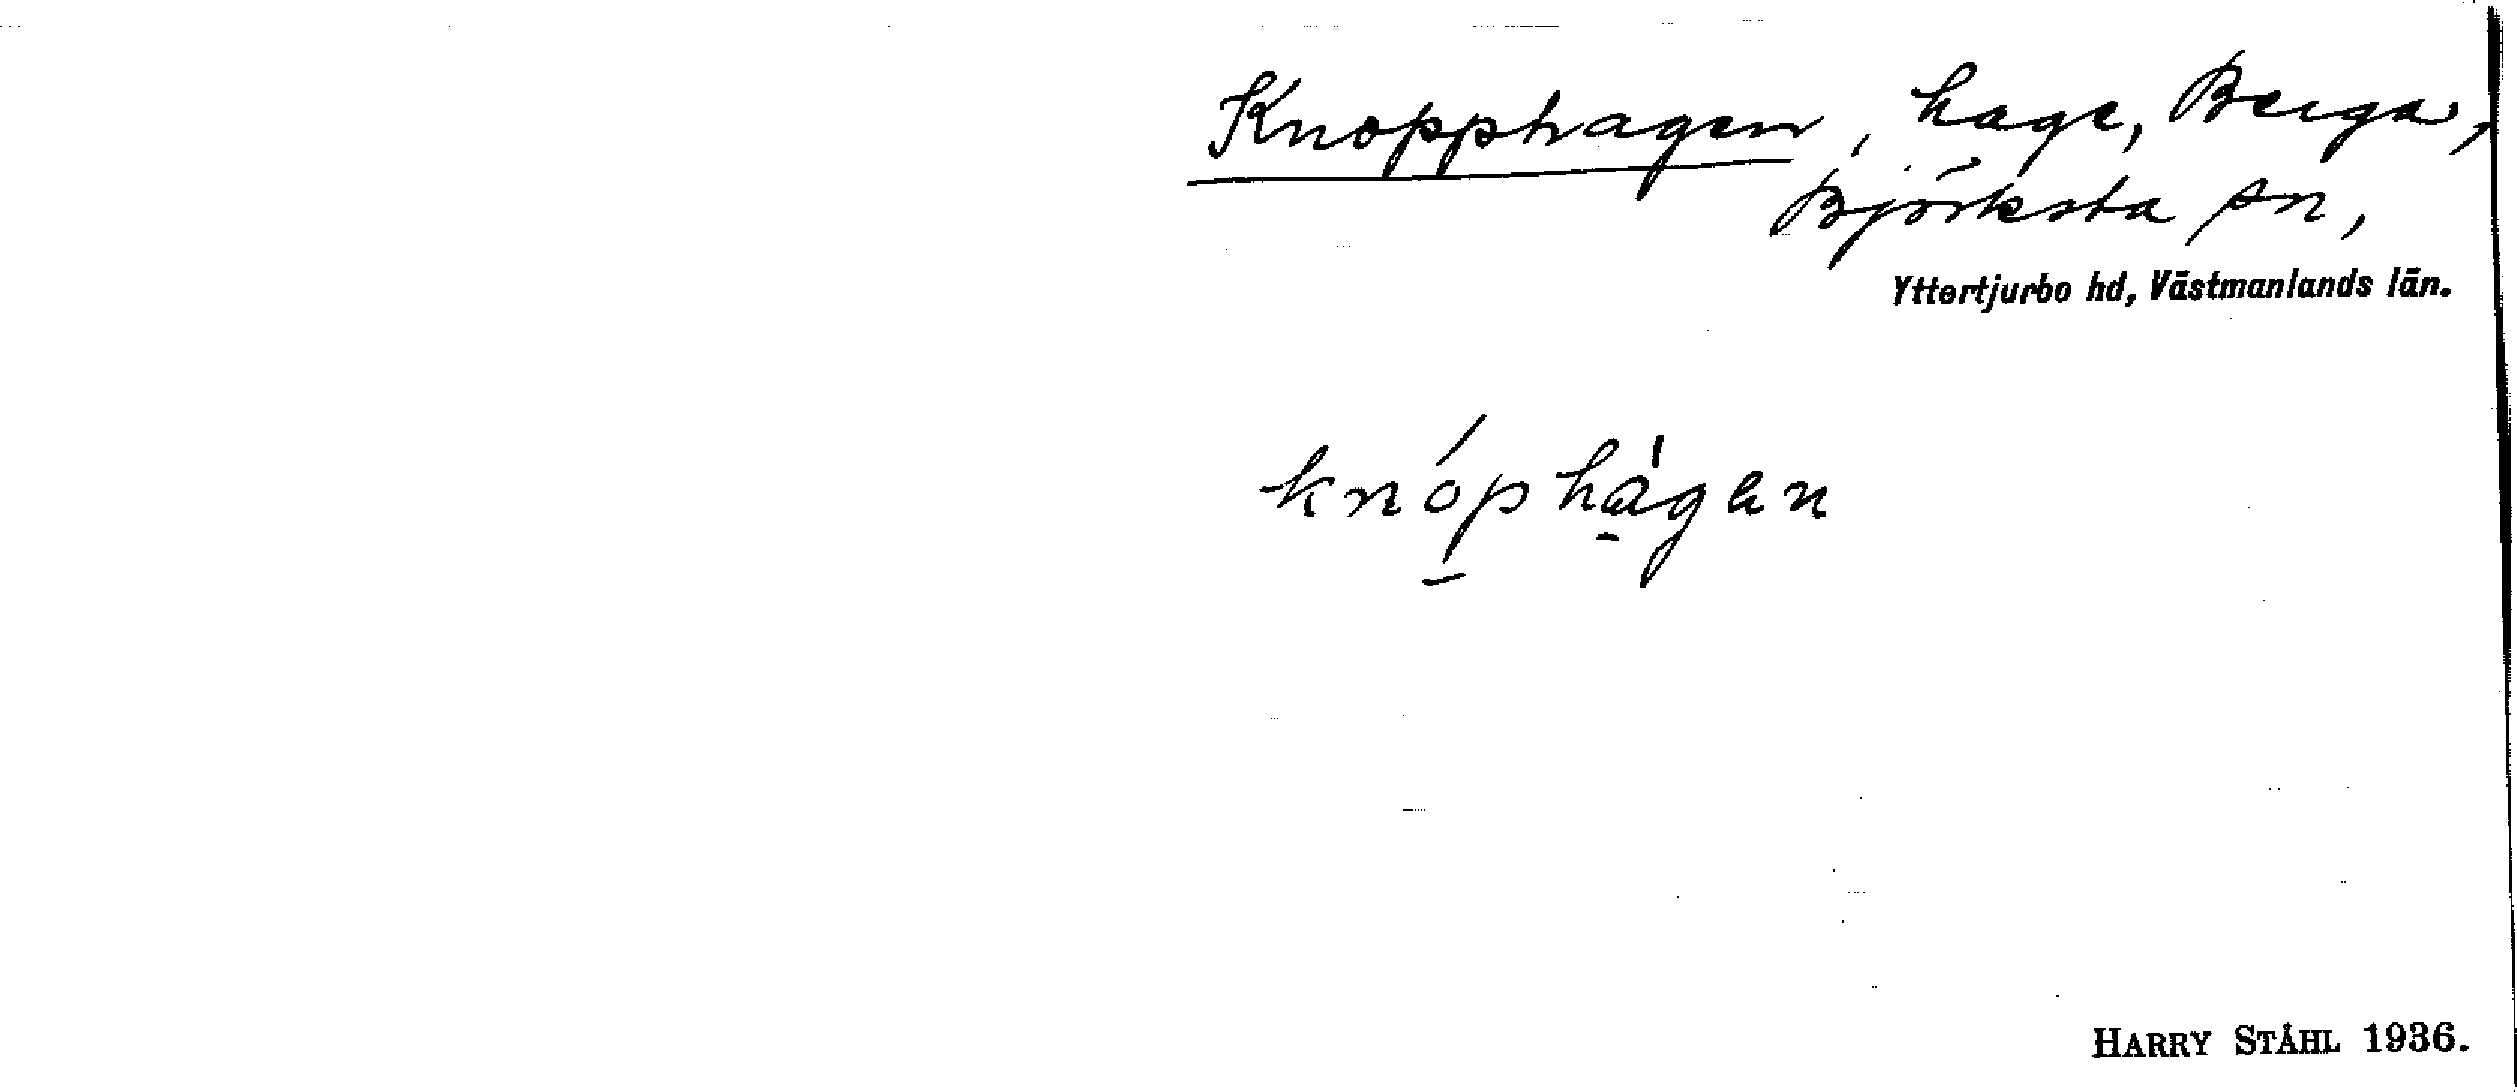 Knopphagen, hage, Berga,
Björksta sn,
Yttertjurbo hd, Västmanlands län.
knóphágen
HARRY STÅHL 1936.